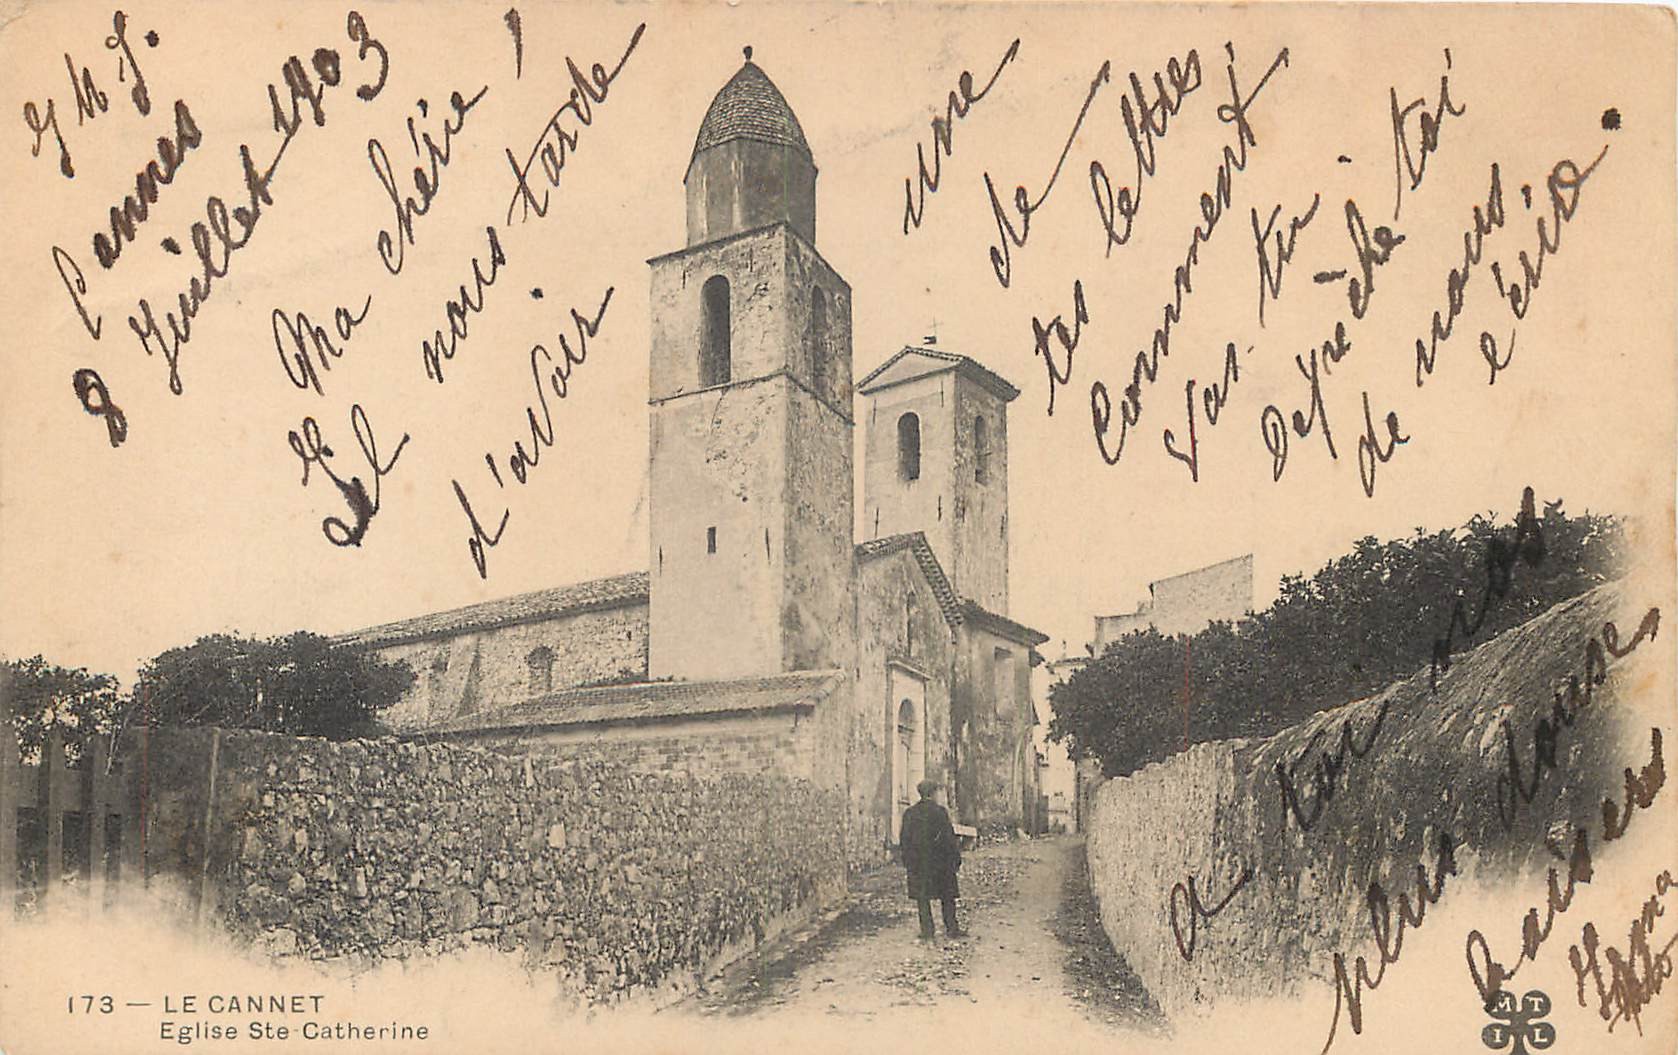 Cannes
8 Juillet 1903
Ma chérie !
Il
nous tarde
d'avoir
une
de
tes lettres
Comment
vas-tu
Dépêche toi
de nous
écrire.
a toi nos
plus douse
baisers
173 — LE CANNET
Eglise Ste-Catherine
M T
I L